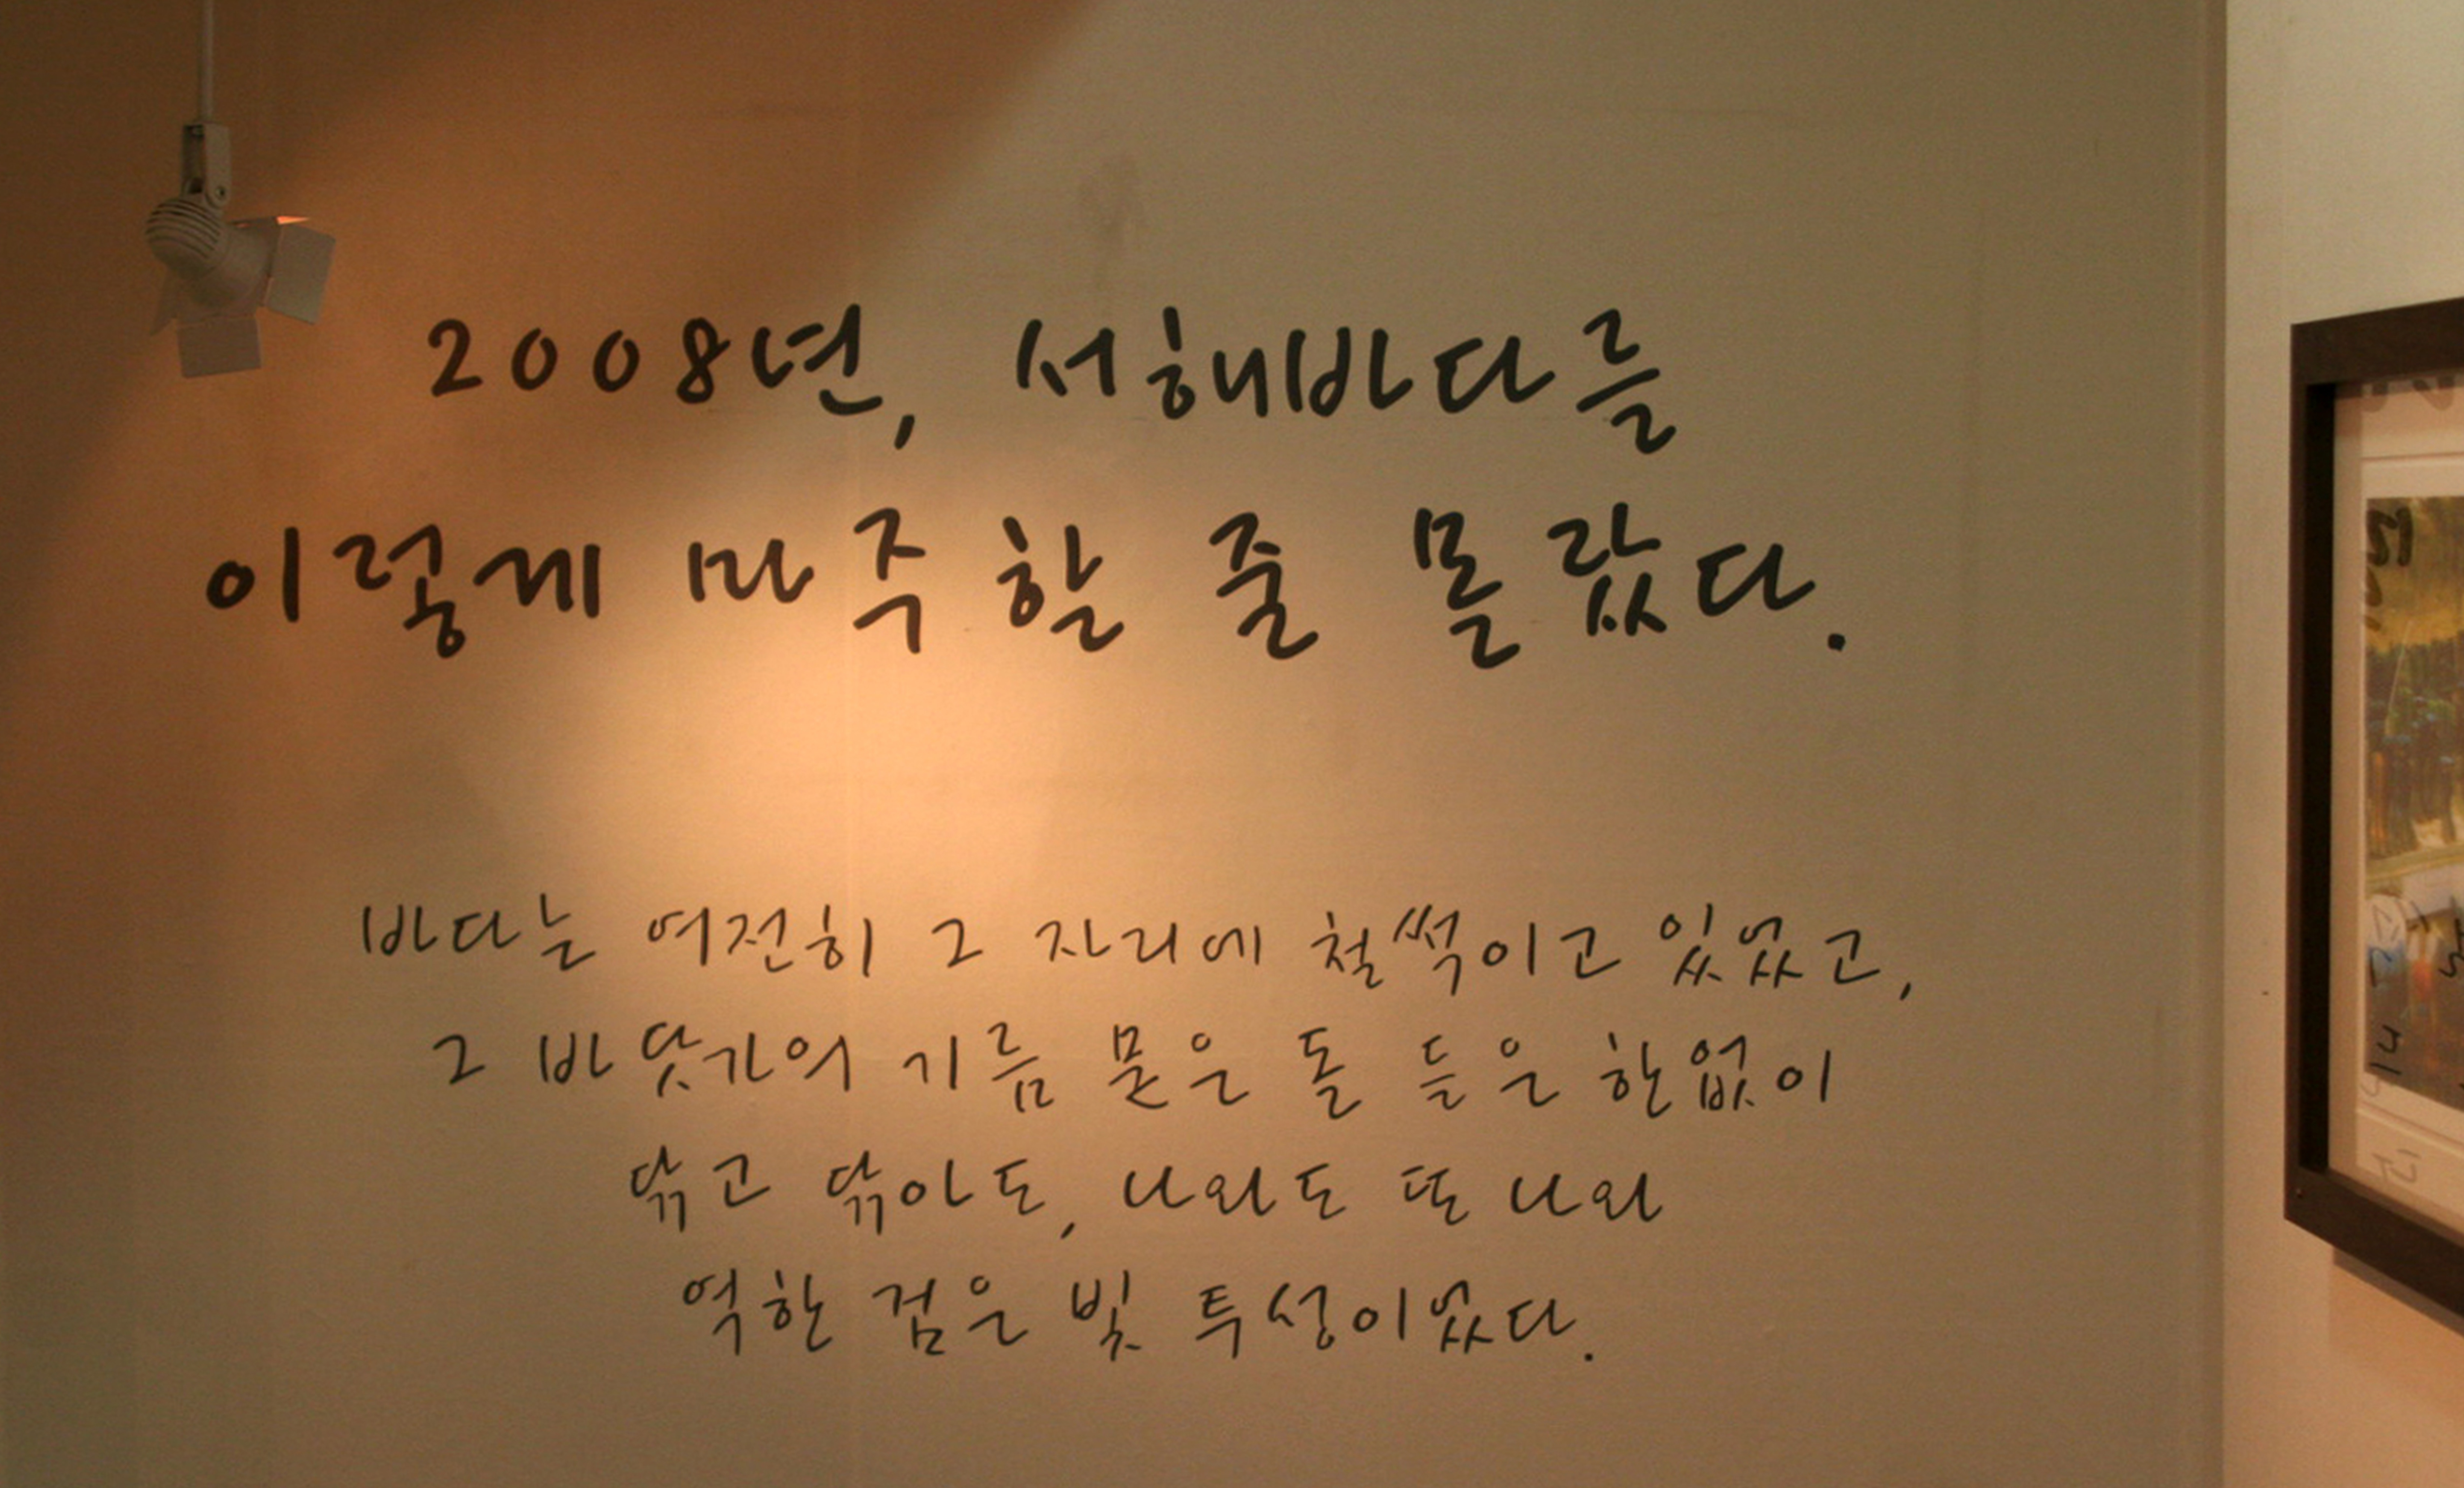 2008년, 서해바다를
이렇게 마주할 줄 몰랐다.
바다는 여전히 그 자리에 철썩이고 있었고,
그 바닷가의 기름 묻은 돌들은 한없이
닦고 닦아도, 나와도 또 나와
역한 검은 빛 투성이었다.